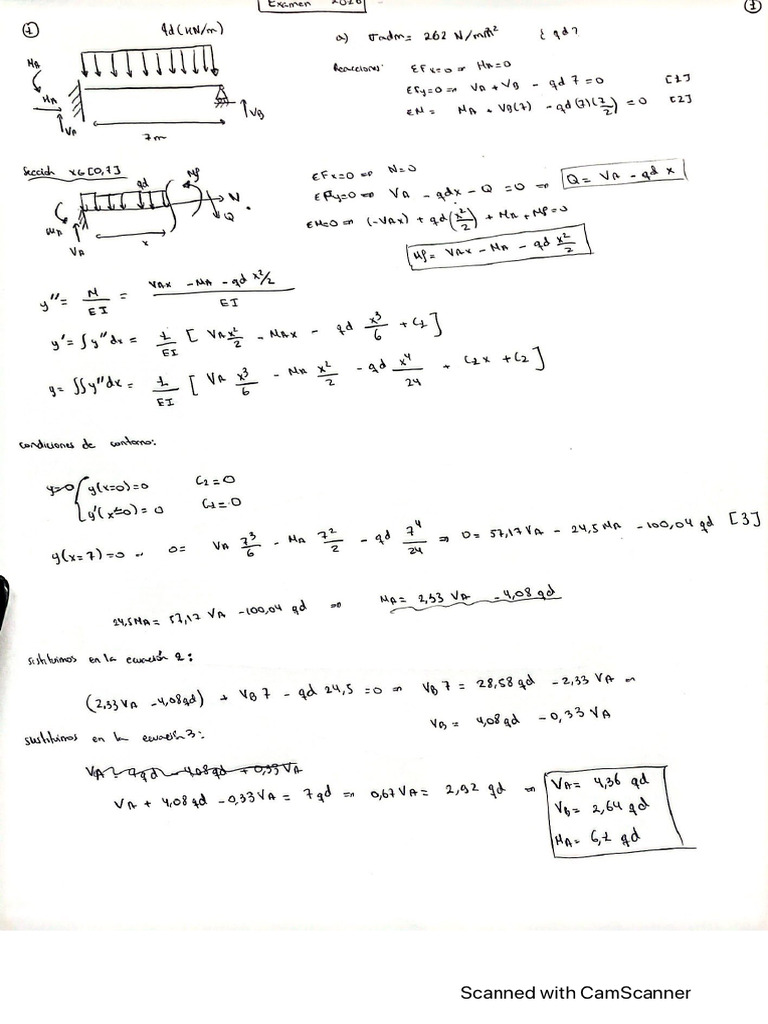 Examen 2020
1
1
qd (kN/m)
MA
HA
VA
VB
7m
a) σadm = 262 N/mm² ¿ qd?
Reacciones: ΣFx=0 ⇒ HA=0
ΣFy=0 ⇒ VA + VB - qd 7 = 0 [1]
ΣM = MA + VB(7) - qd (7)(7/2) = 0 [2]
Sección x∈[0,7]
qd
Mf
N
Q
MA
VA
x
ΣFx=0 ⇒ N=0
ΣFy=0 ⇒ VA - qdx - Q = 0 ⇒ Q = VA - qd x
ΣM=0 ⇒ (-VAx) + qd(x²/2) + MA + Mf = 0
Mf = VAx - MA - qd x²/2
y'' = M/EI = (VAx - MA - qd x²/2)/EI
y' = ∫y''dx = 1/EI [ VA x²/2 - MAx - qd x³/6 + C1 ]
y = ∫∫y''dx = 1/EI [ VA x³/6 - MA x²/2 - qd x⁴/24 + C1x + C2 ]
condiciones de contorno:
y=0 { y(x=0)=0 C2=0
y'(x=0)=0 C1=0
y(x=7)=0 ⇒ 0= VA 7³/6 - MA 7²/2 - qd 7⁴/24 ⇒ 0= 57,17 VA - 24,5 MA - 100,04 qd [3]
24,5MA = 57,17 VA - 100,04 qd ⇒ MA = 2,33 VA - 4,08 qd
sustituimos en la ecuación 2:
(2,33 VA - 4,08qd) + VB 7 - qd 24,5 = 0 ⇒ VB 7 = 28,58 qd - 2,33 VA ⇒
VB = 4,08 qd - 0,33 VA
sustituimos en la ecuación 3:
VA + 4,08qd - 0,33VA = 7qd ⇒ 0,67VA = 2,92 qd ⇒
VA = 4,36 qd
VB = 2,64 qd
MA = 6,1 qd
Scanned with CamScanner